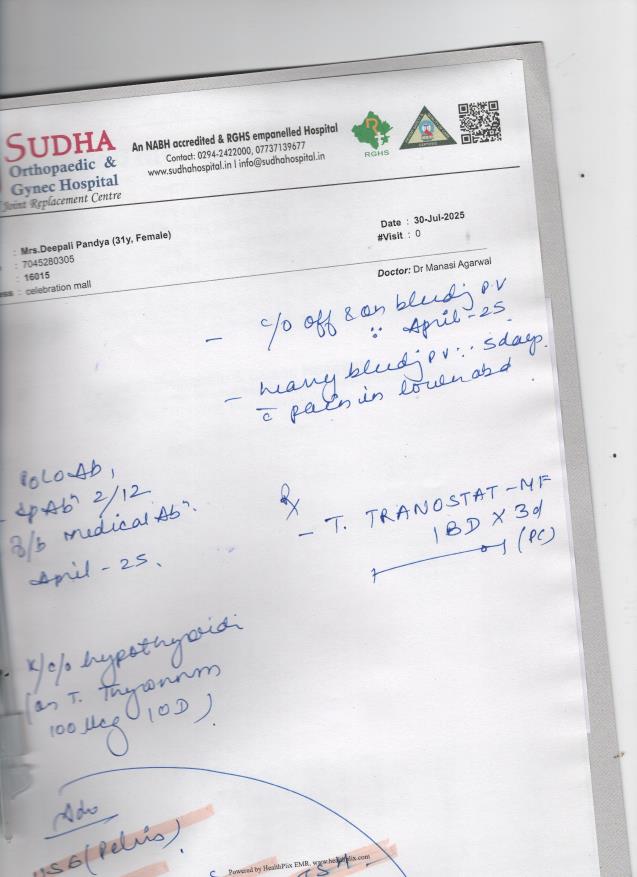 SUDHA
Orthopaedic &
Gynec Hospital
Joint Replacement Centre
An NABH accredited & RGHS empanelled Hospital
Contact: 0294-2422000, 07737139677
www.sudhahospital.in I info@sudhahospital.in
RGHS
: Mrs.Deepali Pandya (31y, Female)
: 7045280305
: 16015
: celebration mall
Date : 30-Jul-2025
#Visit : 0
Doctor: Dr Manasi Agarwal
- c/o off & on bleedj P.V
∵ April-25.
- heavy bleedj P.V ∵ 5days.
c̄ pain in lower abd.
P0L0Ab1
- SpAbn 2/12
f/b medical Abn.
April-25.
Rx
- T. TRANOSTAT-MF
1BD X 3d
(PC)
K/c/o hypothyroidi
(on T. Thyronorm
100 mcg 1OD)
Adv
USG (Pelvis)
TSH.
Powered by HealthPlix EMR, www.healthplix.com